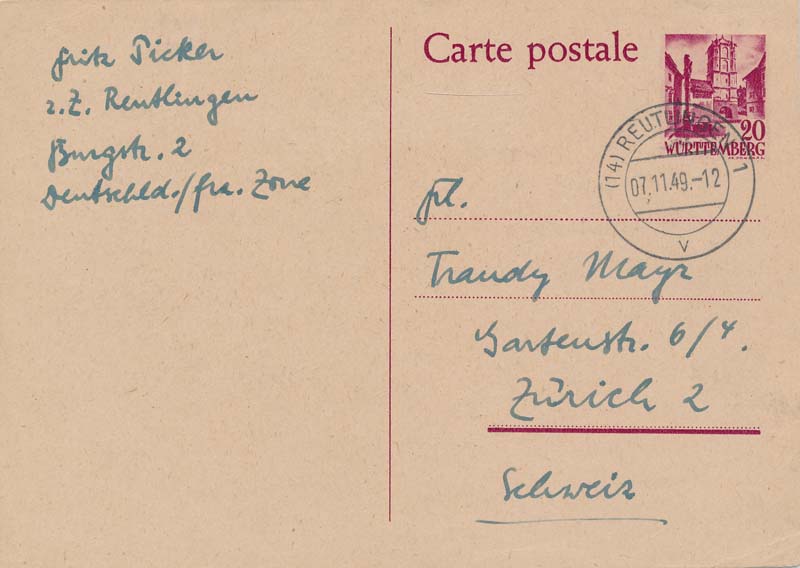 Fritz Picker
z.Z. Reutlingen
Burgstr. 2
Deutschld./frz. Zone
Carte postale
20
WÜRTTEMBERG
(14) REUTLINGEN 1
07.11.49.-12
v
Frl.
Traudy Mayr
Gartenstr. 6/4.
Zürich 2
Schweiz